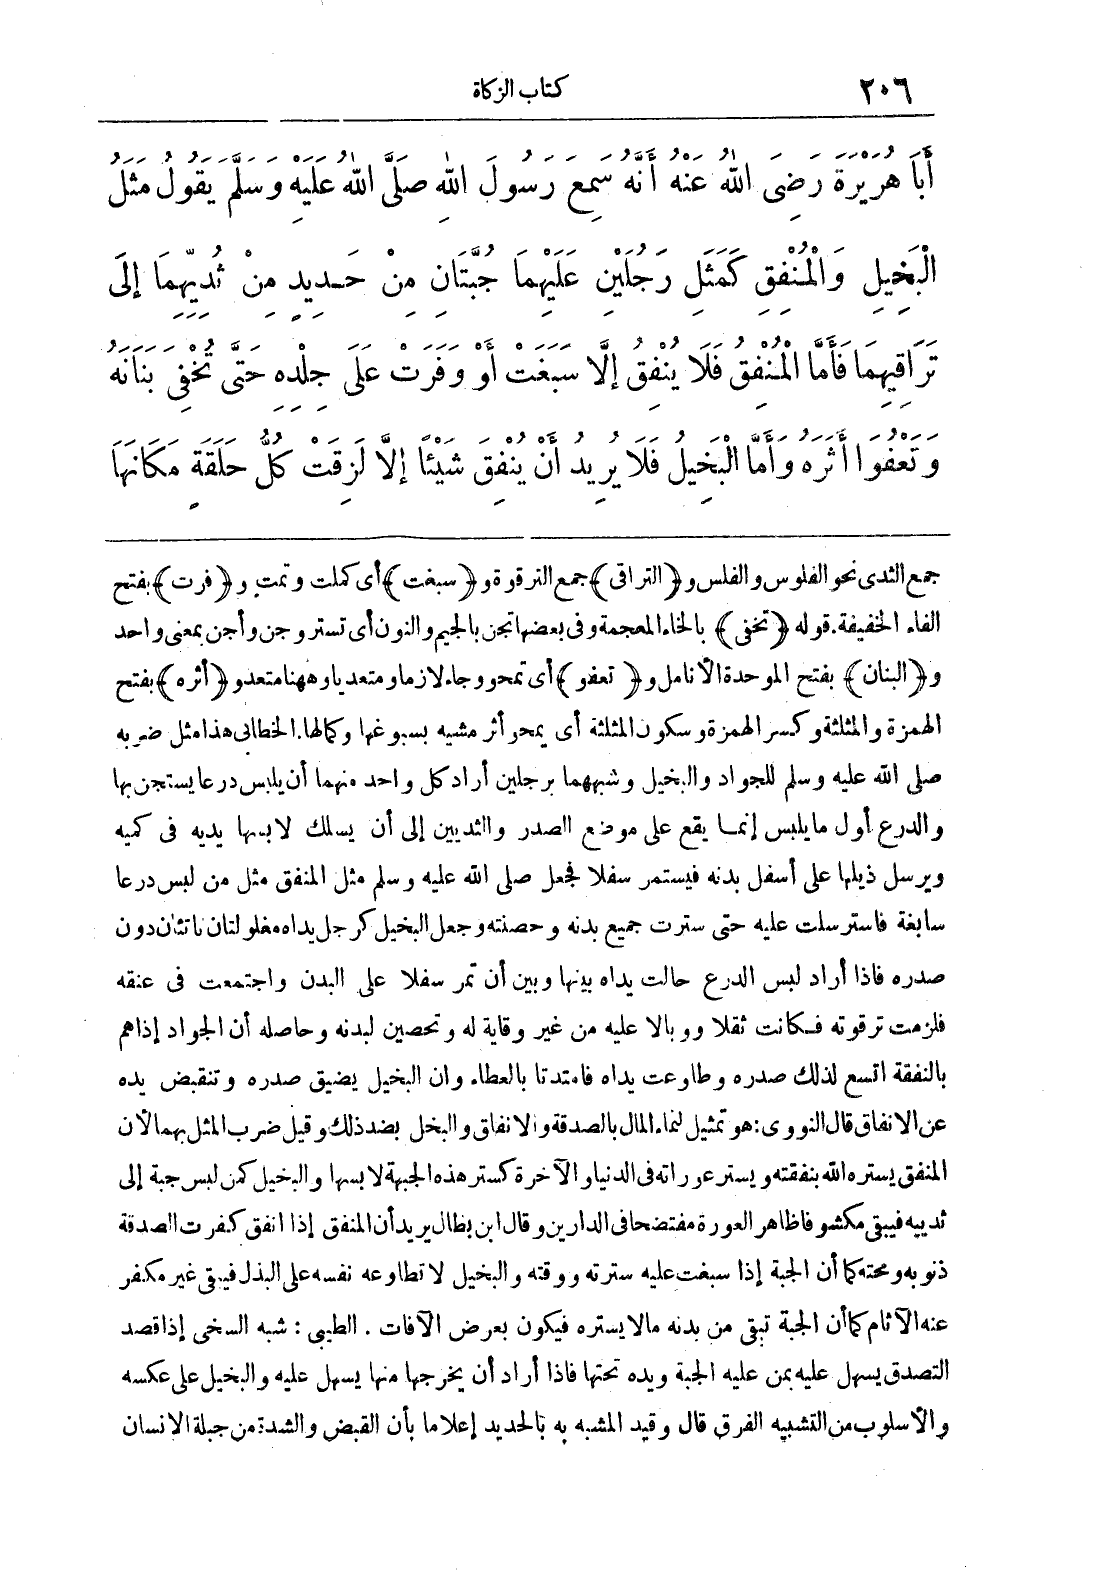 ٢٠٦ كتاب الزكاة
أَبَا هُرَيْرَةَ رَضِىَ اللهُ عَنْهُ أَنَّهُ سَمِعَ رَسُولَ اللهِ صَلَّى اللهُ عَلَيْهِ وَسَلَّمَ يَقُولُ مَثَلُ
الْبَخِيلِ وَالْمُنْفِقِ كَمَثَلِ رَجُلَيْنِ عَلَيْهِمَا جُبَّتَانِ مِنْ حَدِيدٍ مِنْ ثُدِيِّهِمَا إِلَى
تَرَاقِيهِمَا فَأَمَّا الْمُنْفِقُ فَلَا يُنْفِقُ إِلَّا سَبَغَتْ أَوْ وَفَرَتْ عَلَى جِلْدِهِ حَتَّى تُخْفِىَ بَنَانَهُ
وَتَعْفُوَ أَثَرَهُ وَأَمَّا الْبَخِيلُ فَلَا يُرِيدُ أَنْ يُنْفِقَ شَيْئًا إِلَّا لَزِقَتْ كُلُّ حَلَقَةٍ مَكَانَهَا
جمع الثدى نحو الفلوس والفلس و﴿التراقى﴾ جمع الترقوة و﴿سبغت﴾ أى كملت وتمت و﴿فرت﴾ بفتح
الفاء الخفيفة. قوله ﴿تخفى﴾ بالخاء المعجمة وفى بعضها تجن بالجيم والنون أى تستر وجن وأجن بمعنى واحد
و﴿البنان﴾ بفتح الموحدة الأنامل و﴿تعفو﴾ أى تمحو وجاء لازما ومتعديا وههنا متعد و﴿أثره﴾ بفتح
الهمزة والمثلثة وكسر الهمزة وسكون المثلثة أى يمحو أثر مشيه بسبوغها وكمالها. الخطابى هذا مثل ضربه
صلى الله عليه وسلم للجواد والبخيل وشبههما برجلين أراد كل واحد منهما أن يلبس درعا يستجن بها
والدرع أول ما يلبس إنما يقع على موضع الصدر والثديين إلى أن يسلك لابسها يديه فى كميه
ويرسل ذيلها على أسفل بدنه فيستمر سفلا فجعل صلى الله عليه وسلم مثل المنفق مثل من لبس درعا
سابغة فاسترسلت عليه حتى سترت جميع بدنه وحصنته وجعل البخيل كرجل يداه مغلولتان ناتئتان دون
صدره فاذا أراد لبس الدرع حالت يداه بينها وبين أن تمر سفلا على البدن واجتمعت فى عنقه
فلزمت ترقوته فكانت ثقلا ووبالا عليه من غير وقاية له وتحصين لبدنه وحاصله أن الجواد إذا هم
بالنفقة اتسع لذلك صدره وطاوعت يداه فامتدتا بالعطاء وان البخيل يضيق صدره وتنقبض يده
عن الانفاق قال النووى: هو تمثيل لنماء المال بالصدقة والانفاق والبخل بضد ذلك وقيل ضرب المثل بهما لأن
المنفق يستره الله بنفقته ويستر عوراته فى الدنيا والآخرة كستر هذه الجبهة لابسها والبخيل كمن لبس جبة إلى
ثدييه فيبقى مكشوفا ظاهر العورة مفتضحا فى الدارين وقال ابن بطال يريد أن المنفق إذا انفق كفرت الصدقة
ذنوبه ومحته كما أن الجبة إذا سبغت عليه سترته ووقته والبخيل لا تطاوعه نفسه على البذل فيبقى غير مكفر
عنه الآثام كما أن الجبة تبقى من بدنه مالا يستره فيكون بعرض الآفات . الطيبى : شبه السخى إذا قصد
التصدق يسهل عليه بمن عليه الجبة ويده تحتها فاذا أراد أن يخرجها منها يسهل عليه والبخيل على عكسه
والأسلوب من التشبيه الفرق قال وقيد المشبه به بالحديد إعلاما بأن القبض والشدة من جبلة الانسان